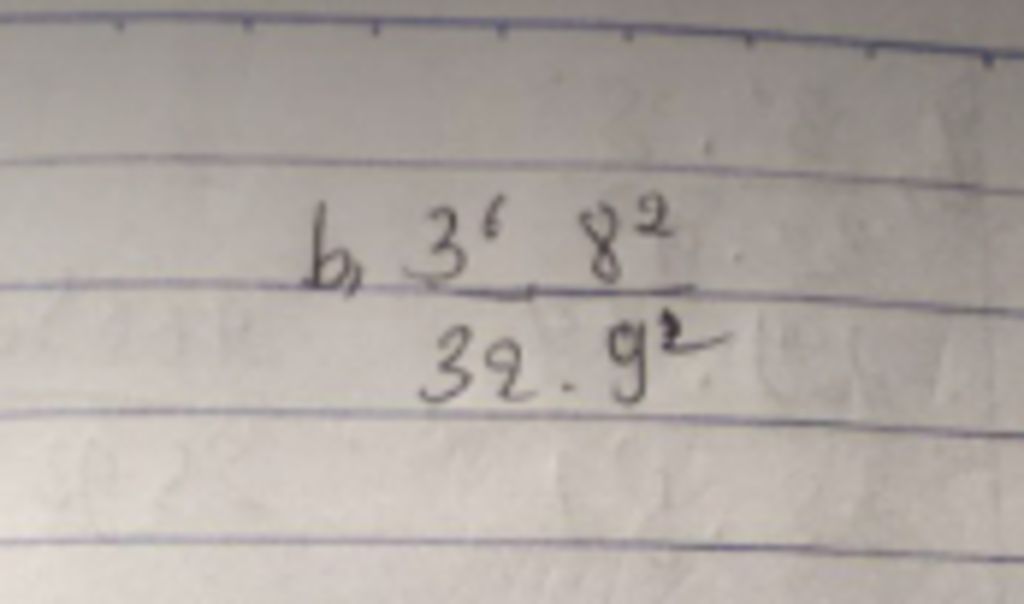 b, 3⁶ 8²
32 . 9²